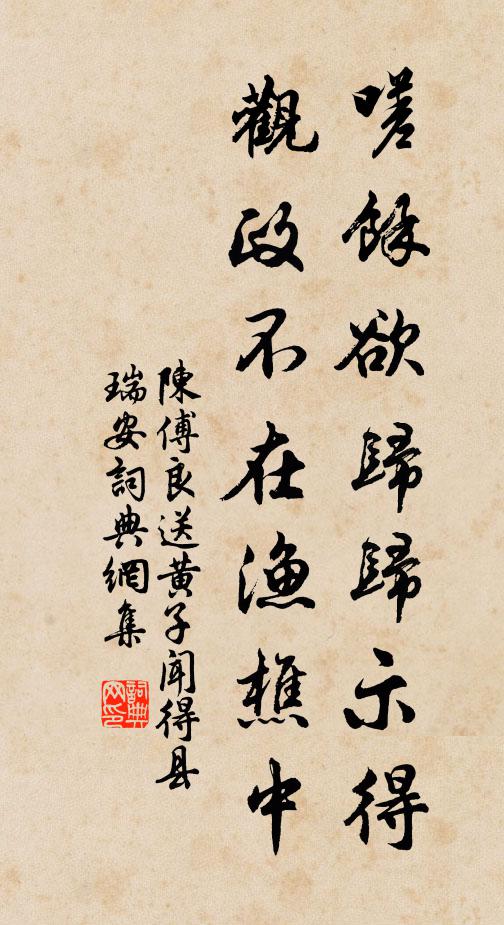 嗟餘欲歸歸示得
觀政不在漁樵中
陳傅良送黄子聞得县
瑞安詞典網集
詞典网印